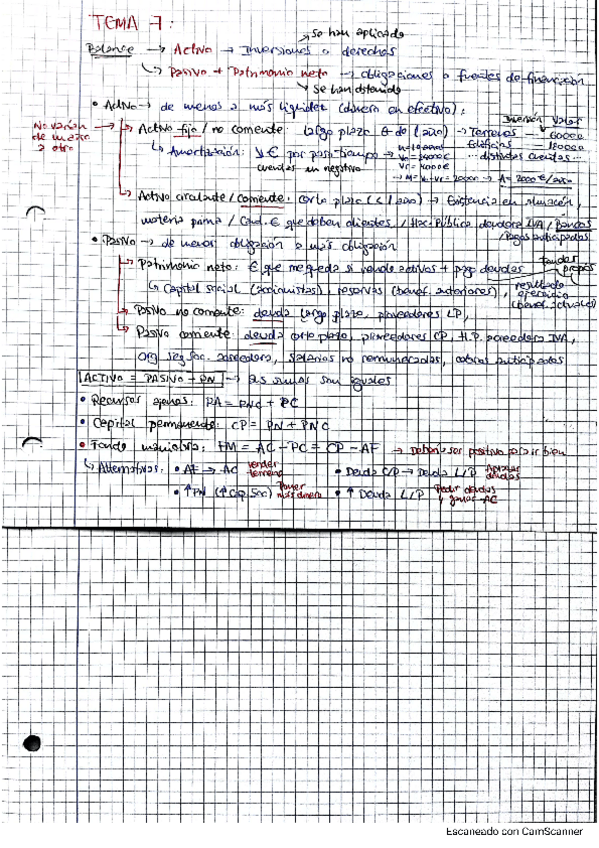 TEMA 7:
se han aplicado
Balance → Activo → Inversiones o derechos
↳ Pasivo + Patrimonio neto → obligaciones o fuentes de financiación
se han obtenido
• Activo → de menos a más liquidez (dinero en efectivo):
No varían de un año a otro
Inversión Valor
→ Activo fijo / no corriente: largo plazo (+ de 1 año) → Terrenos — 60000
Edificios — 180000
↳ Amortización: ↓ € por paso tiempo → ... distintas cuentas ...
cuentas en negativo
→ A = 2000 €/año
→ Activo circulante / corriente: corto plazo (≤ 1 año) → Existencias en almacén,
materia prima / Cant. € que deben clientes / Hac. Pública deudora IVA / Bancos
/ Pagos anticipados
• Pasivo → de menor obligación a más obligación
fondos propios
→ Patrimonio neto: € que me queda si vendo activos + pago deudas
↳ Capital social (accionistas), reservas (benef. anteriores), resultado ejercicio (benef. actuales)
→ Pasivo no corriente: deuda largo plazo, proveedores LP,
→ Pasivo corriente: deuda corto plazo, proveedores CP, H.P. acreedora IVA,
org. seg. soc. acreedora, salarios no remunerados, cobros anticipados
ACTIVO = PASIVO + PN → las sumas son iguales
• Recursos ajenos: RA = PNC + PC
• Capital permanente: CP = PN + PNC
• Fondo maniobra: FM = AC - PC = CP - AF → Debería ser positivo para ir bien
↳ Alternativas: • AF → AC vender terreno • Deuda C/P → Deuda L/P Aplazar deudas
• ↑ PN (↑ Cap. Soc) Poner más dinero • ↑ Deuda L/P Pedir deudas y ganar AC
Escaneado con CamScanner